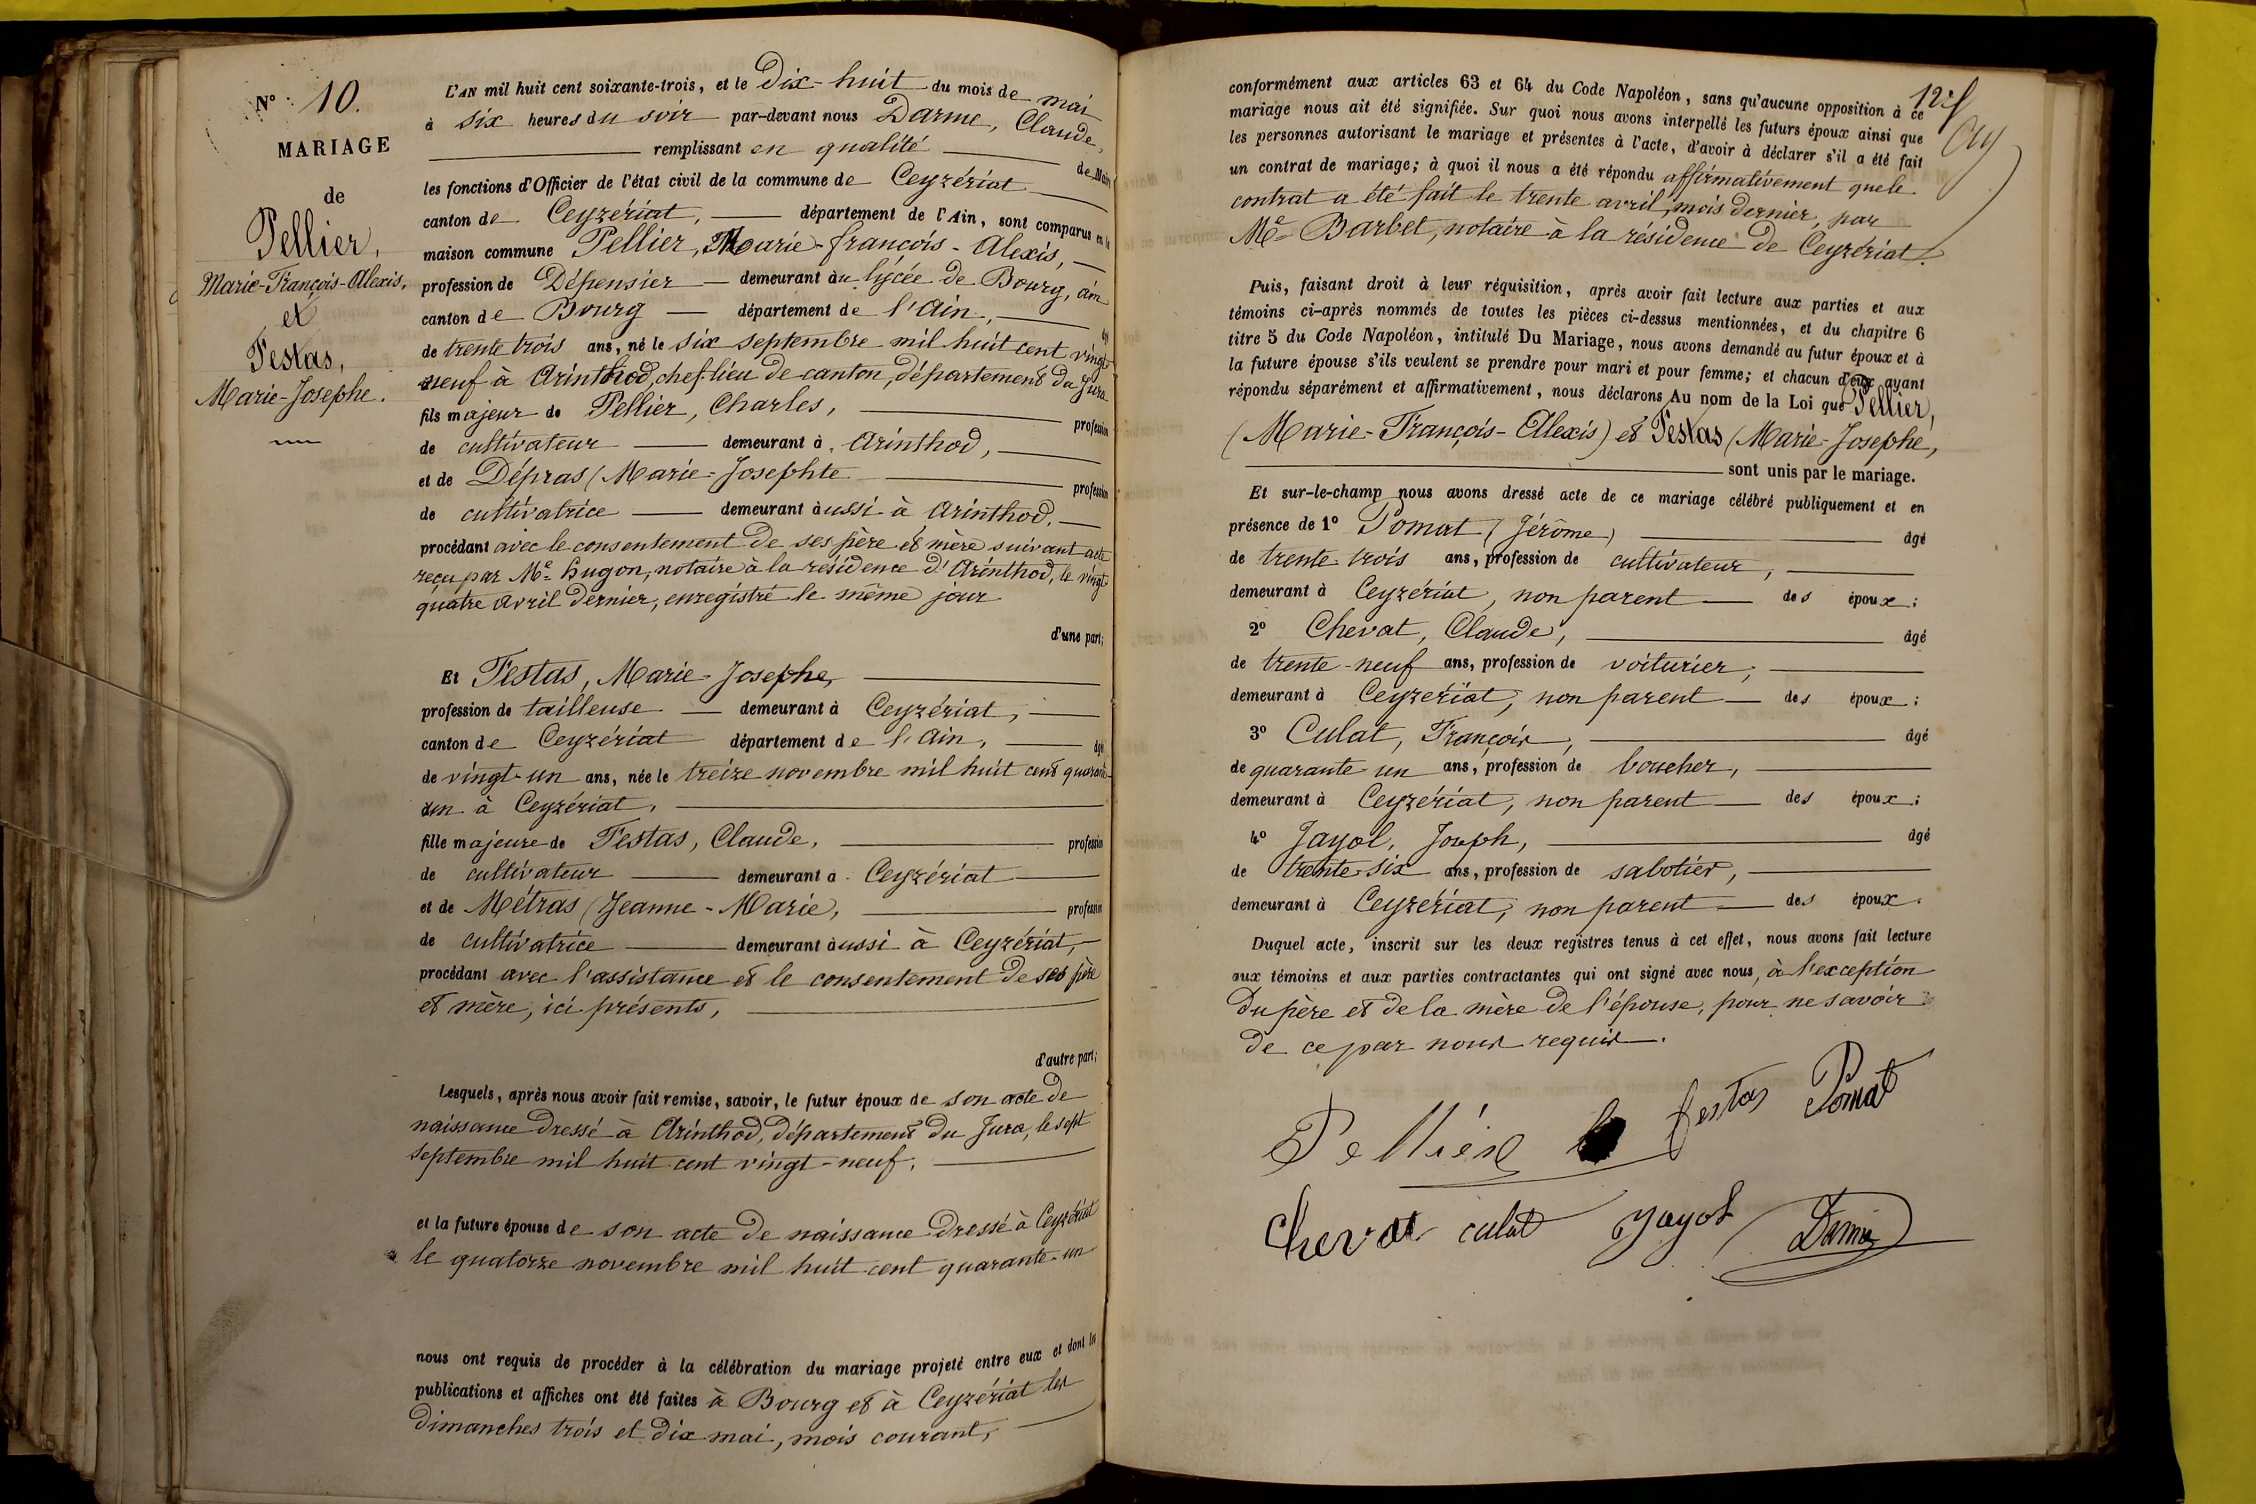 N° 10.
MARIAGE
de
Pellier,
Marie-François-Alexis,
et
Festas,
Marie-Josephe.
L'AN mil huit cent soixante-trois, et le Dix-huit du mois de mai
à six heures du soir par-devant nous Darme, Claude,
remplissant en qualité de Maire
les fonctions d'Officier de l'état civil de la commune de Ceyzériat
canton de Ceyzériat, département de l'Ain, sont comparus en la
maison commune Pellier, Marie-françois-Alexis,
profession de Dépensier demeurant au lycée de Bourg, ain
canton de Bourg département de l'Ain,
de trente trois ans, né le six septembre mil huit cent vingt
neuf à Arinthod, chef-lieu de canton, département du Jura
fils majeur de Pellier, Charles, profession
de cultivateur demeurant à Arinthod,
et de Dépras (Marie-Josephte profession
de cultivatrice demeurant aussi à Arinthod,
procédant avec le consentement de ses père et mère suivant acte
reçu par Me Hugon, notaire à la résidence d'Arinthod, le vingt
quatre avril dernier, enregistré le même jour
d'une part;
Et Festas, Marie-Josephe,
profession de tailleuse demeurant à Ceyzériat,
canton de Ceyzériat département de l'Ain, âgé
de vingt-un ans, née le treize novembre mil huit cent quarante-
un à Ceyzériat,
fille majeure de Festas, Claude, profession
de cultivateur demeurant à Ceyzériat
et de Métras (Jeanne-Marie, profession
de cultivatrice demeurant aussi à Ceyzériat,
procédant avec l'assistance et le consentement de ses père
et mère, ici présents,
d'autre part;
Lesquels, après nous avoir fait remise, savoir, le futur époux de son acte de
naissance dressé à Arinthod, département du Jura, le sept
septembre mil huit cent vingt-neuf,
et la future épouse de son acte de naissance dressé à Ceyzériat
le quatorze novembre mil huit cent quarante-un
nous ont requis de procéder à la célébration du mariage projeté entre eux et dont les
publications et affiches ont été faites à Bourg et à Ceyzériat les
dimanches trois et dix mai, mois courant,
conformément aux articles 63 et 64 du Code Napoléon, sans qu'aucune opposition à ce
mariage nous ait été signifiée. Sur quoi nous avons interpellé les futurs époux ainsi que
les personnes autorisant le mariage et présentes à l'acte, d'avoir à déclarer s'il a été fait
un contrat de mariage; à quoi il nous a été répondu affirmativement que le
contrat a été fait le trente avril, mois dernier, par
Me Barbet, notaire à la résidence de Ceyzériat.
Puis, faisant droit à leur réquisition, après avoir fait lecture aux parties et aux
témoins ci-après nommés de toutes les pièces ci-dessus mentionnées, et du chapitre 6
titre 5 du Code Napoléon, intitulé Du Mariage, nous avons demandé au futur époux et à
la future épouse s'ils veulent se prendre pour mari et pour femme; et chacun d'eux ayant
répondu séparément et affirmativement, nous déclarons Au nom de la Loi que Pellier,
(Marie-François-Alexis) et Festas (Marie-Josephe,
sont unis par le mariage.
Et sur-le-champ nous avons dressé acte de ce mariage célébré publiquement et en
présence de 1° Pomat (Jérôme) âgé
de trente trois ans, profession de cultivateur,
demeurant à Ceyzériat, non parent des époux;
2° Chevat, Claude, âgé
de trente-neuf ans, profession de voiturier,
demeurant à Ceyzériat, non parent des époux;
3° Culat, François, âgé
de quarante un ans, profession de boucher,
demeurant à Ceyzériat, non parent des époux;
4° Jayol, Joseph, âgé
de trente-six ans, profession de sabotier,
demeurant à Ceyzériat, non parent des époux.
Duquel acte, inscrit sur les deux registres tenus à cet effet, nous avons fait lecture
aux témoins et aux parties contractantes qui ont signé avec nous, à l'exception
du père et de la mère de l'épouse, pour ne savoir
de ce par nous requis.
Pelliér festas Pomat
Chevat culat Jayol Darme